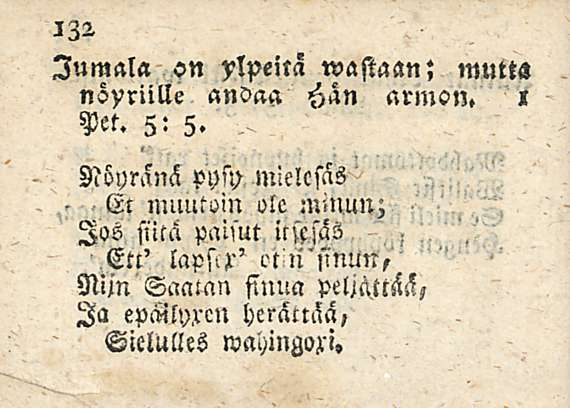 132
Jumala on ylpeitä wastaan; mutta
nöyriille andaa Hän armon. 1
Pet. 5: 5.
Nöyränä pysy mielesäs
Et muutoin ole minun;
Jos siitä paisut itsesäs
Ett' lapsex' otin sinun,
Nijn Saatan sinua peljättää,
Ja epäilyxen herättää,
Sielulles wahingoxi.